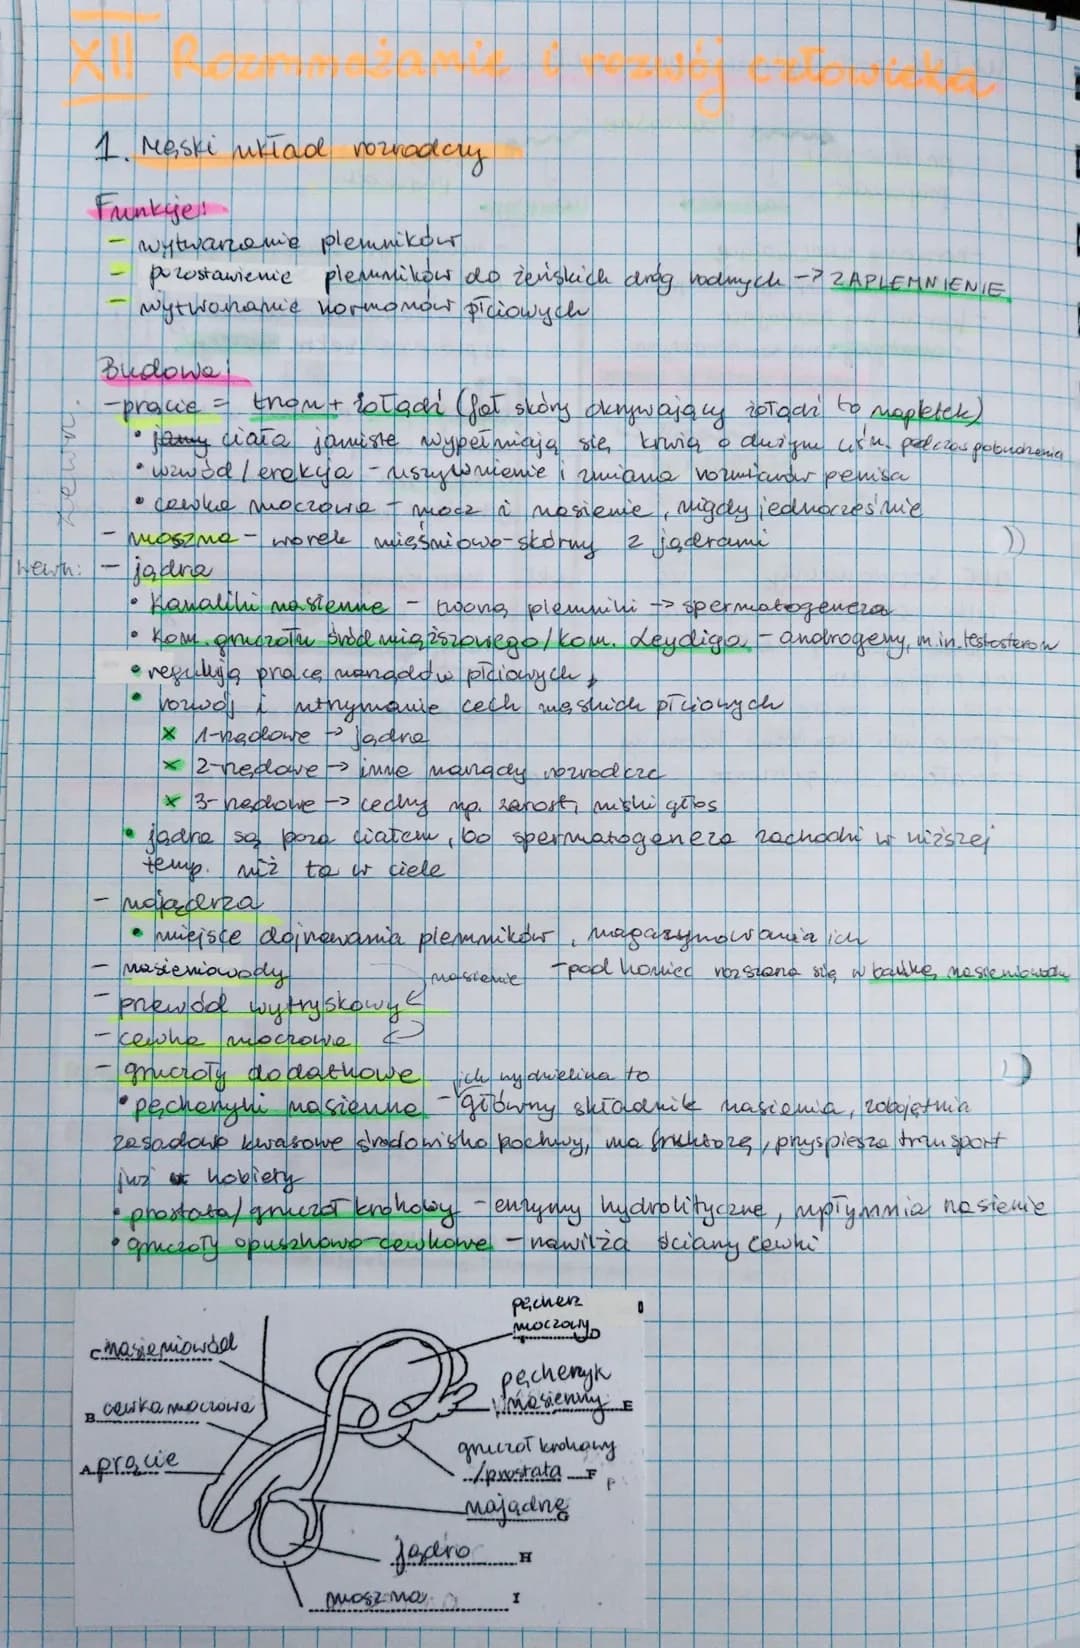 XII Rozmnażanie i rozwój człowieka
1. Męski układ rozrodczy
Funkcje:
- wytwarzanie plemników
- pozostawienie plemników do żeńskich dróg rodnych -> ZAPLEMNIENIE
- wytwarzanie hormonów płciowych
Budowa:
zewn.
- prącie = trzon + żołądź (fał skóry okrywający żołądź to napletek)
• ciała jamiste wypełniają się krwią o dużym ciśn. podczas pobudzenia
• wzwód / erekcja - usztywnienie i zmiana rozmiarów penisa
• cewka moczowa - mocz i nasienie, nigdy jednocześnie
- moszna - worek mięśniowo-skórny z jądrami
wewn: - jądra
• kanaliki nasienne - tworzą plemniki -> spermatogeneza
• kom. gruczołu śródmiąższowego / kom. Leydiga - androgeny, m.in. testosteron
• regulują pracę narządów płciowych
• rozwój i utrzymanie cech męskich płciowych
x 1-rzędowe -> jądra
x 2-rzędowe -> inne narządy rozrodcze
x 3-rzędowe -> cechy np. zarost, niski głos
• jądra są poza ciałem, bo spermatogeneza zachodzi w niższej
temp. niż ta w ciele
- najądrza
• miejsce dojrzewania plemników, magazynowania ich
- nasieniowody nasienie - pod koniec rozszerza się w bańkę nasieniowodu
- przewód wytryskowy
- cewka moczowa
- gruczoły dodatkowe ich wydzielina to
• pęcherzyki nasienne - główny składnik nasienia, zobojętnia
zasadowo kwasowe środowisko pochwy, ma fruktozę, przyspiesza transport
już u kobiety
• prostata / gruczoł krokowy - enzymy hydrolityczne, upłynnia nasienie
• gruczoły opuszkowo-cewkowe - nawilża ściany cewki
pęcherz
moczowy D
C nasieniowód
pęcherzyk
nasienny E
B cewka moczowa
gruczoł krokowy
/prostata F
A prącie
najądrze G
jądro H
moszna I